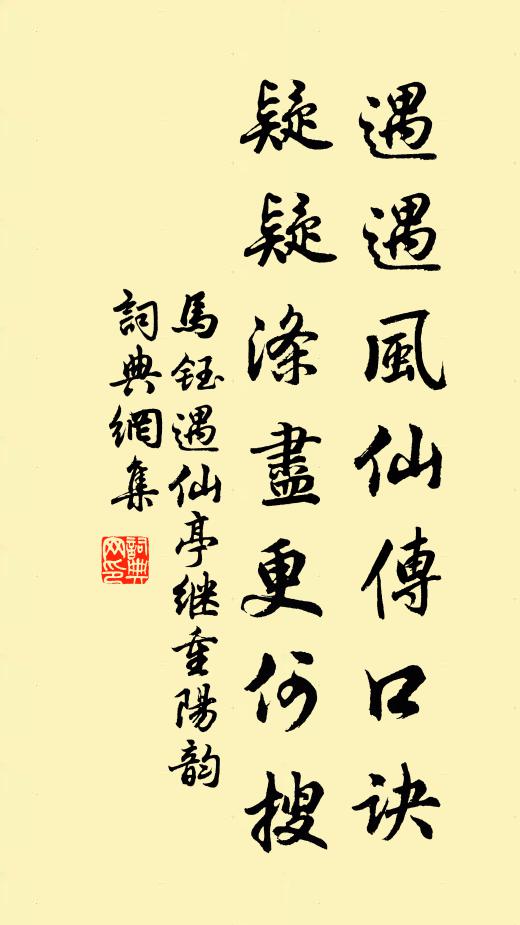 遇遇風仙傳口诀
疑疑滌盡更何搜
馬鈺遇仙亭继重陽韵
詞典網集
詞典網印